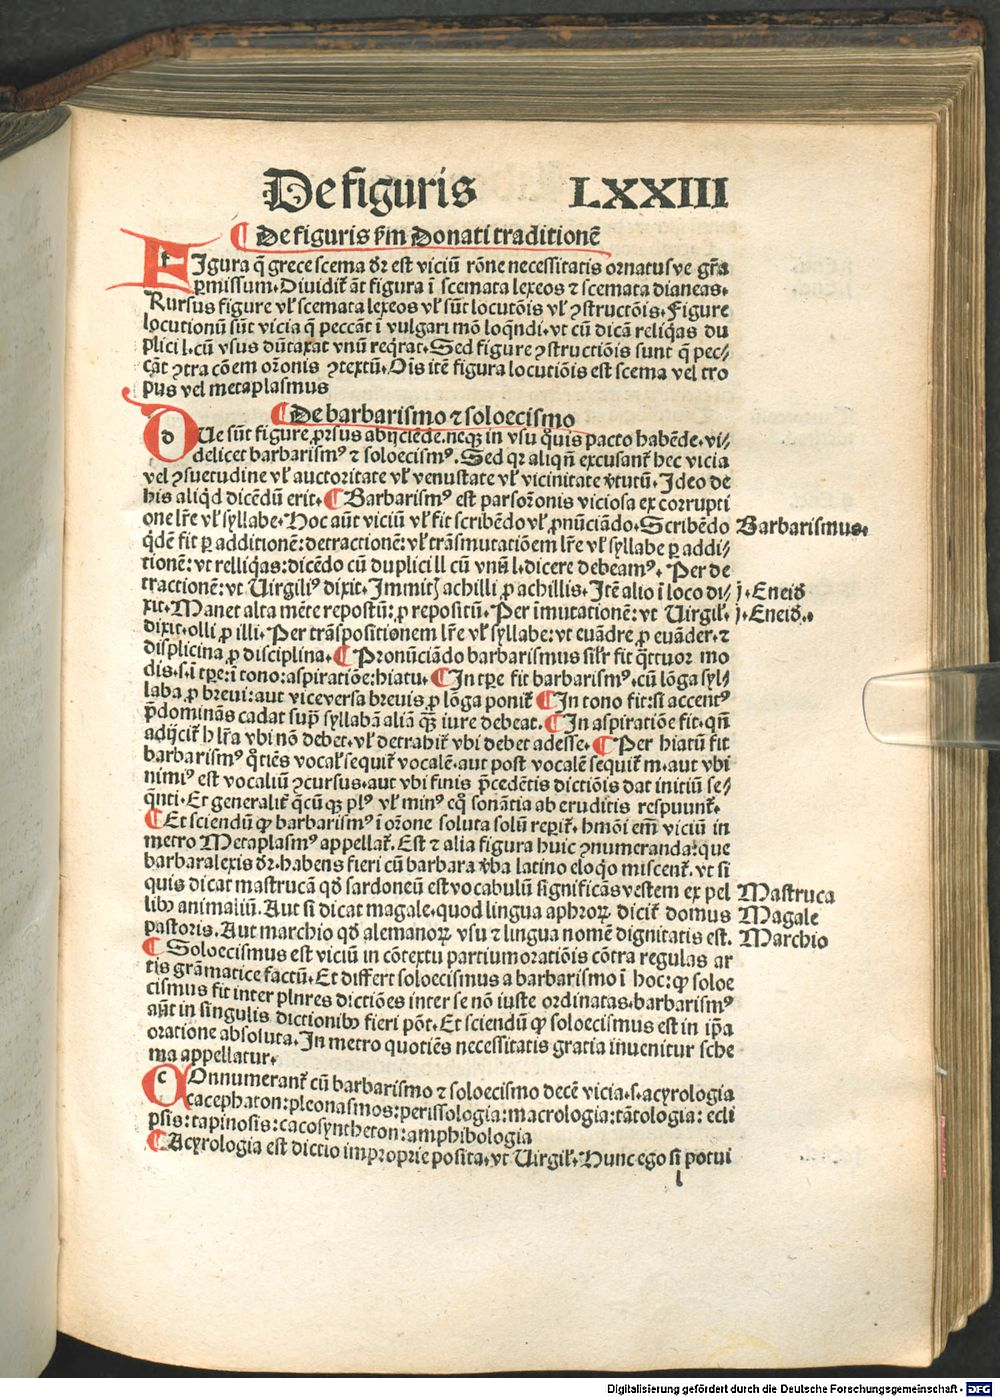 De figuris LXXIII
¶ De figuris s̄m Donati traditionē
FIgura q̄ grece scema dr̄ est viciū rōne necessitatis ornatus ve gr̄a
ꝑmissum. Diuidit̄ āt figura ī scemata lexeos ⁊ scemata dianeas.
Rursus figure vl̄ scemata lexeos vl̄ sūt locutōis vl̄ ꝯstructōis. Figure
locutionū sūt vicia q̄ peccāt ī vulgari mō loq̄ndi. vt cū dicā reliq̄as du
plici l. cū vsus dūtaxat vnū req̄rat. Sed figure ꝯstructiōis sunt q̄ pec⸗
cāt ꝯtra cōem or̄onis ꝯtextū. Oīs itē figura locutiōis est scema vel tro
pus vel metaplasmus
¶ De barbarismo ⁊ soloecismo
dUe sūt figure ꝓrsus abijciēde. neqꝫ in vsu q̄uis pacto habēde. vi⸗
delicet barbarismꝰ ⁊ soloecismꝰ. Sed qꝛ aliqn̄ excusant̄ hec vicia
vel ꝯsuetudine vl̄ auctoritate vl̄ venustate vl̄ vicinitate v̄tutū. Ideo de
his aliq̄d dicēdū erit. ¶ Barbarismꝰ est pars or̄onis viciosa ex corrupti
one lr̄e vl̄ syllabe. Hoc aūt viciū vl̄ fit scribēdo vl̄ ꝓnūciādo. Scribēdo Barbarismus.
q̄dē fit ꝑ additionē: detractionē: vl̄ trāsmutatiōem lr̄e vl̄ syllabe ꝑ addi⸗
tionē: vt relliq̄as: dicēdo cū duplici ll cū vnū l. dicere debeamꝰ. Per de
tractionē: vt Virgiliꝰ dixit. Immitꝫ achilli ꝓ achillis. Itē alio ī loco di⸗ j. Eneid̄
xit. Manet alta mēte repostū: ꝓ repositū. Per īmutationē: vt Virgil̄. j. Eneid̄.
dixit. olli ꝓ illi. Per trāspositionem lr̄e vl̄ syllabe: vt euādre ꝓ euāder. ⁊
displicina ꝓ disciplina. ¶ Pronūciādo barbarismus sil̄r fit q̄ttuor mo
dis. s. ī tꝑe: ī tono: aspiratiōe: hiatu. ¶ In tꝑe fit barbarismꝰ. cū lōga syl⸗
laba ꝓ breui: aut viceversa breuis ꝓ lōga ponit̄ ¶ In tono fit: si accentꝰ
p̄dominās cadat sup̄ syllabā aliā qꝫ̄ iure debeat. ¶ In aspiratiōe fit. qn̄
adijcit̄ h lr̄a vbi nō debet. vl̄ detrahit̄ vbi debet adesse. ¶ Per hiatū fit
barbarismꝰ q̄tiēs vocal̄ sequit̄ vocalē. aut post vocalē sequit̄ m. aut vbi
nimiꝰ est vocaliū ꝯcursus. aut vbi finis p̄cedētis dictiōis dat initiū se⸗
q̄nti. Et generalit̄ q̄cū qꝫ plꝰ vl̄ minꝰ eq̄ sonātia ab eruditis respuunt̄.
¶ Et sciendū ꝙ barbarismꝰ ī or̄one soluta solū reꝑit̄. hmōi em̄ viciū in
metro Metaplasmꝰ appellat̄. Est ⁊ alia figura huic ꝯnumeranda: que
barbaralexis dr̄. habens fieri cū barbara v̄ba latino eloq̄o miscent̄. vt si
quis dicat mastrucā qd̄ sardoneū est vocabulū significās vestem ex pel Mastruca
libꝰ animaliū. Aut si dicat magale. quod lingua aphroꝝ dicit̄ domus Magale
pastoris. Aut marchio qd̄ alemanoꝝ vsu ⁊ lingua nomē dignitatis est. Marchio
¶ Soloecismus est viciū in cōtextu partium oratiōis cōtra regulas ar
tis grāmatice factū. Et differt soloecismus a barbarismo ī hoc: ꝙ soloe
cismus fit inter plures dictiōes inter se nō iuste ordinatas. barbarismꝰ
aūt in singulis dictionibꝰ fieri pōt. Et sciendū ꝙ soloecismus est in ip̄a
oratione absoluta. In metro quotiēs necessitatis gratia inuenitur sche
ma appellatur.
cOnnumerant̄ cū barbarismo ⁊ soloecismo decē vicia. s. acyrologia
cacephaton: pleonasmos: perissologia: macrologia: tātologia: ecli
psis: tapinosis: cacosyntheton: amphibologia
¶ Acyrologia est dictio improprie posita. vt Virgil̄. Hunc ego si potui
l
Digitalisierung gefördert durch die Deutsche Forschungsgemeinschaft - DFG